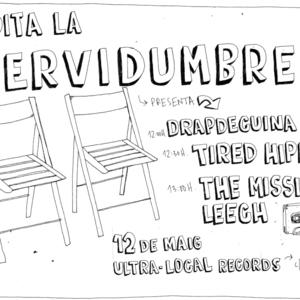 DITA LA
ERVIDUMBRE
PRESENTA
12:00H DRAPDECUINA
12:30H TIRED HIPP
13:00H THE MISSI
LEECH
12 DE MAIG
ULTRA-LOCAL RECORDS